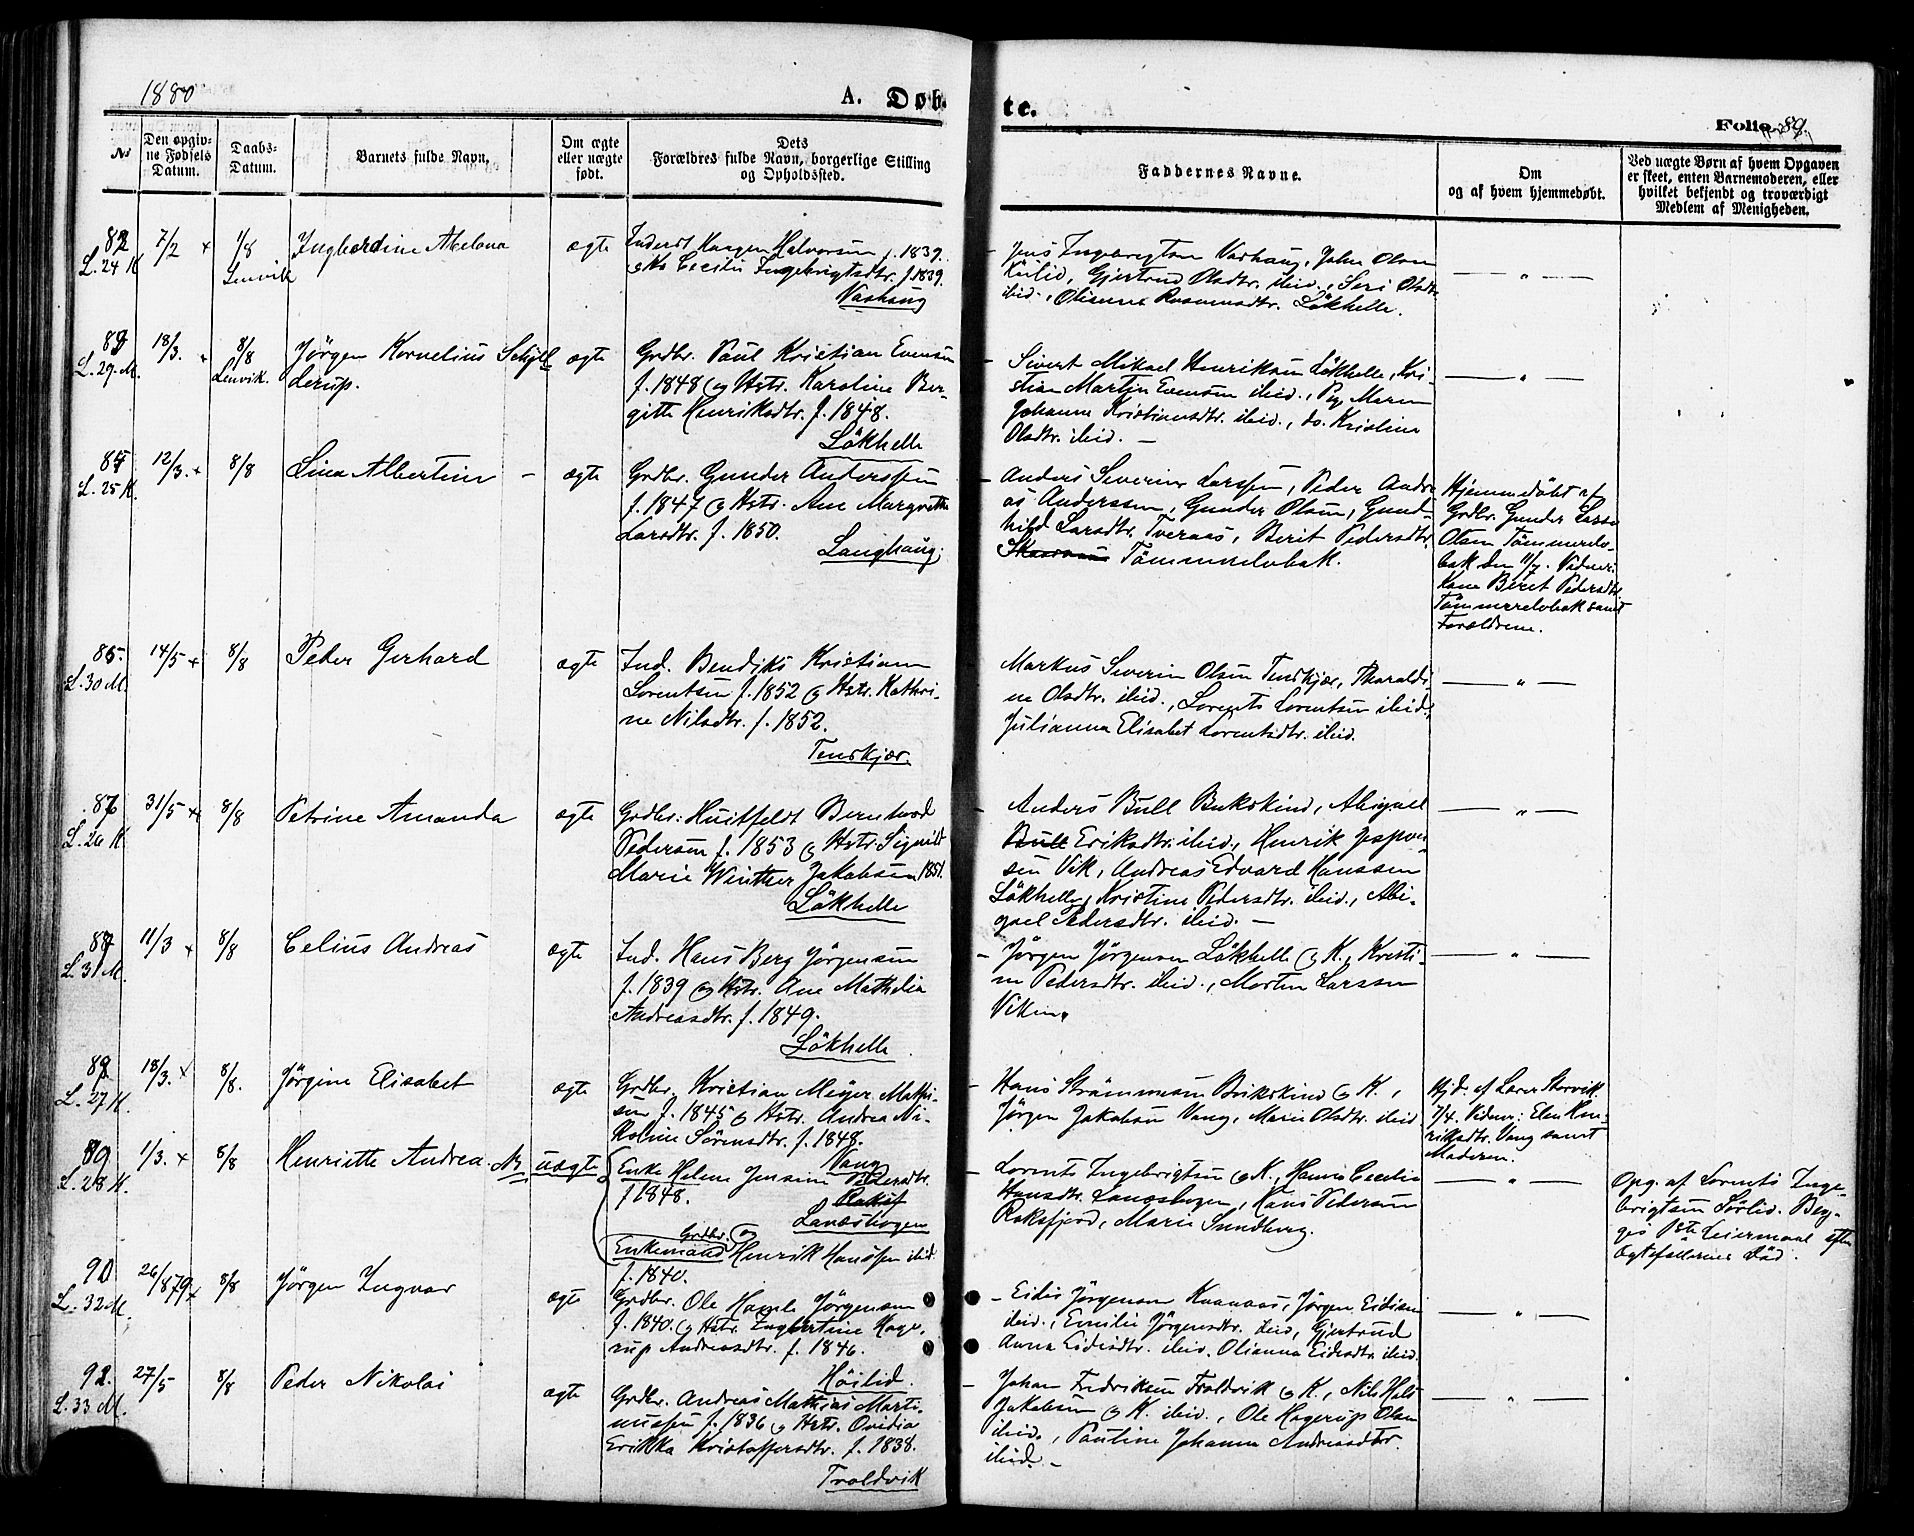 1880
A. Døb-
te.
Folio 89.
No
Den opgiv-
ne Fødsels
Datum.
Daabs-
Datum.
Barnets fulde Navn.
Om ægte
eller uægte
født.
Dets
Forældres fulde Navn, borgerlige Stilling
og Opholdssted.
Faddernes Navne.
Om
og af hvem hjemmedøbt.
Ved uægte Børn af hvem Opgaven
er skeet, enten Barnemoderen, eller
hvilket bekjendt og troværdigt
Medlem af Menigheden.
82
L. 24 K
7/2 +
1/8
Lenvik
Ingberdine
ægte
Inderst Haagen Halvorsen f. 1839.
Cecilie Ingebrigtsdtr. f. 1839.
Vashaug
Jens Ingebrigtsen Vashaug, Johan Olsen
Gjertrud Olsdtr. ibid., Seri Olsdtr.
ibid., Olianna Rasmusdtr. Lökhelle.
— " —
83
L. 29. M.
18/3.
8/8
Lenvik.
Jörgen Kornelius Schjel-
derup.
ægte
Grdbr. Paul Kristian Evensen
f. 1848 og Hstr. Karoline Ber-
gitte Henriksdtr. f. 1848.
Lökhelle
Sivert Mikael Henriksen Lökhelle, Kri-
stian Martin Evensen ibid., Pige Maren
Johanna Kristiansdtr. ibid., do. Kristine
Olsdtr. ibid. —
— " —
84
L. 25 K.
12/3. +
8/8
Lina Albertine —
ægte
Grdbr. Gunder Anderssen
f. 1847 og Hstr. Ane Margrethe
Larsdtr. f. 1850.
Langhaug.
Anders Severin Larssen, Peder Andre-
as Anderssen, Gunder Olsen, Gund-
hild Larsdtr. Tveraas, Berit Pedersdtr.
Tömmerelvbak.
Hjemmedöbt af
Grdbr. Gunder Larss
Olsen Tömmerelv-
bak den 11/7. Vidner:
Kone Beret Pedersdtr.
Tömmerelvbak samt
Forældrene.
85.
L. 30 M.
14/5 +
8/8
Peder Gerhard
ægte
Ind. Bendiks Kristian
Lorentsen f. 1852 og Hstr. Kathri-
ne Nilsdtr. f. 1852.
Tenskjær.
Markus Severin Olsen Tenskjær, Tharaldi-
ne Olsdtr. ibid., Lorents Lorentsen ibid.,
Julianna Elisabet Lorentsdtr. ibid.
— " —
86
L. 26 K
31/5 +
8/8
Petrine Amanda
ægte
Grdbr. Huitfeldt Berntwod
Pedersen f. 1853 og Hstr. Signild
Marie Winther Jakobsen 1851.
Lökhelle
Anders Bull Bukskind, Abigael
Bull Eriksdtr. ibid., Henrik Jesper-
sen Vik, Andreas Edvard Hanssen
Lökhelle, Kristine Pedersdtr. ibid., Abi-
gael Pedersdtr. ibid. —
— " —
87
L. 31 M.
11/3 +
8/8
Celius Andreas
ægte
Ind. Hans Berg Jörgensen
f. 1839 og Hstr. Ane Mathelia
Andreasdtr. f. 1849.
Lökhelle.
Jörgen Jörgensen Lökhelle og K., Kristi-
ne Pedersdtr. ibid., Morten Larssen
Viken.
— " —
88
L. 27 K.
18/3. +
8/8.
Jörgine Elisabet
ægte
Grdbr. Kristian Meyer Mathi-
sen f. 1845 og Hstr. Andrea Ni-
koline Sörensdtr. f. 1848.
Vang
Hans Strömmesen Bukskind og K.,
Jörgen Jakobsen Vang, Marie Olsdtr. ibid
Hjd. af Lærer Storvik
7/4. Vidner: Elen Hen-
riksdtr. Vang samt
Moderen.
89
L. 28 K.
1/3. +
8/8
Henriette Andrea.
uægte
Enke Helene Jensine Pedersdtr.
f 1848.
Laneshogen
Grdbr. og
Enkemand Henrik Hanssen ibid
f. 1840.
Lorents Ingebrigtsen og K., Hanna Cecilie
Hansdtr. Laneshogen, Hans Pedersen
Roksfjord, Marie Sundberg.
— " —
Opg. af Lorents Inge-
brigtsen Sörlid. Beg-
ges 1ste Leiermaal efter
Ægtefællernes Död.
90
L. 32 M.
26/8 79 +
8/8
Jörgen Ingvar
ægte
Grdbr. Ole Hamle Jörgensen
f. 1840. og Hstr. Ingbertine Hage-
rup Andreasdtr. f. 1846.
Höilid.
Eidis Jörgensen Kvanaas, Jörgen Eidissen
ibid., Emilie Jörgensdtr. ibid, Gjertrud
Anna Eidisdtr. ibid. Olianna Eidesdtr. ibid.
— " —
92.
L. 33 M.
27/5
8/8
Peder Nikolai
ægte
Grdbr. Andreas Mathias Marti-
nussen f. 1836 og Hstr. Ovidia
Erikka Kristoffersdtr. f. 1838.
Troldvik
Johan Fredriksen Troldvik og K., Nils Holst
Jakobsen og K. ibid., Ole Hagerup Olsen
ibid., Pauline Johanna Andreasdtr.
ibid. —
— " —